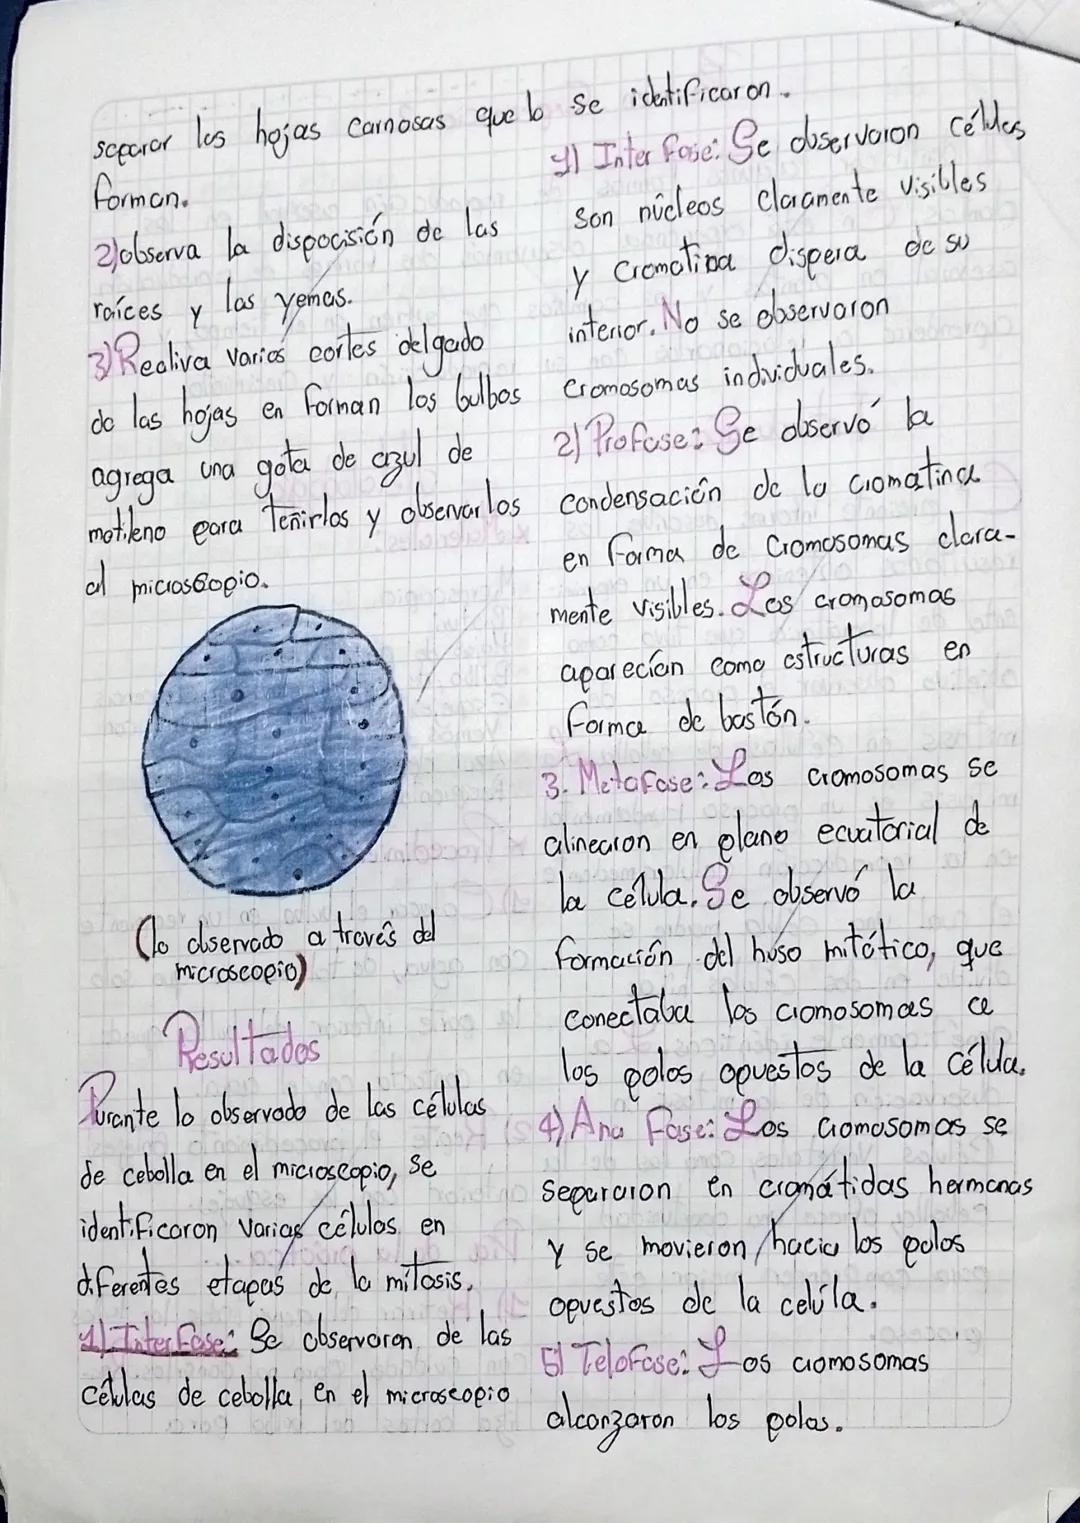 separar los hojas carnosas que lo
forman.
2)observa la disposisión de las
raíces y las yemas.
3)Realiva varios cortes delgado
do las hojas en forman los bulbos
agrega una gota de azul de
motileno para teñirlos y observarlos
al microscopio.
(lo observado a través del
microscopio)
Resultados
Durante lo observado de las células
de cebolla en el microscopio, se
identificaron varias células en
diferentes etapas de la mitosis.
1) Interfase: Se observaron de las
células de cebolla en el microscopio
se identificaron.
1) Inter fase: Se observaron células
son núcleos claramente visibles
y cromatina dispera de su
interior. No se observaron
cromosomas individuales.
2) Profase: Se observó la
condensación de la cromatina
en forma de cromosomas clara-
mente visibles. Los cromosomas
aparecían como estructuras en
forma de bastón.
3. Metafase: Los cromosomas se
alinearon en plano ecuatorial de
la célula. Se observó la
formación del huso mitótico, que
conectaba los cromosomas a
los polos opuestos de la célula.
4) Ana fase: Los cromosomas se
separaron en cromátidas hermanas
y se movieron hacia los polos
opuestos de la celúla.
5) Telofase: Los cromosomas
alcanzaron los polos.